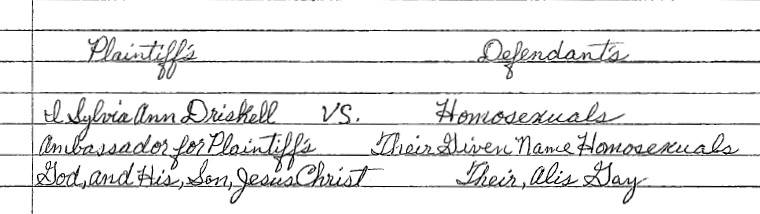 Plaintiff's Defendant's
I Sylvia Ann Driskell VS. Homosexuals
Ambassador for Plaintiff's Their Given Name Homosexuals
God, and His, Son, Jesus Christ Their, Alis Gay